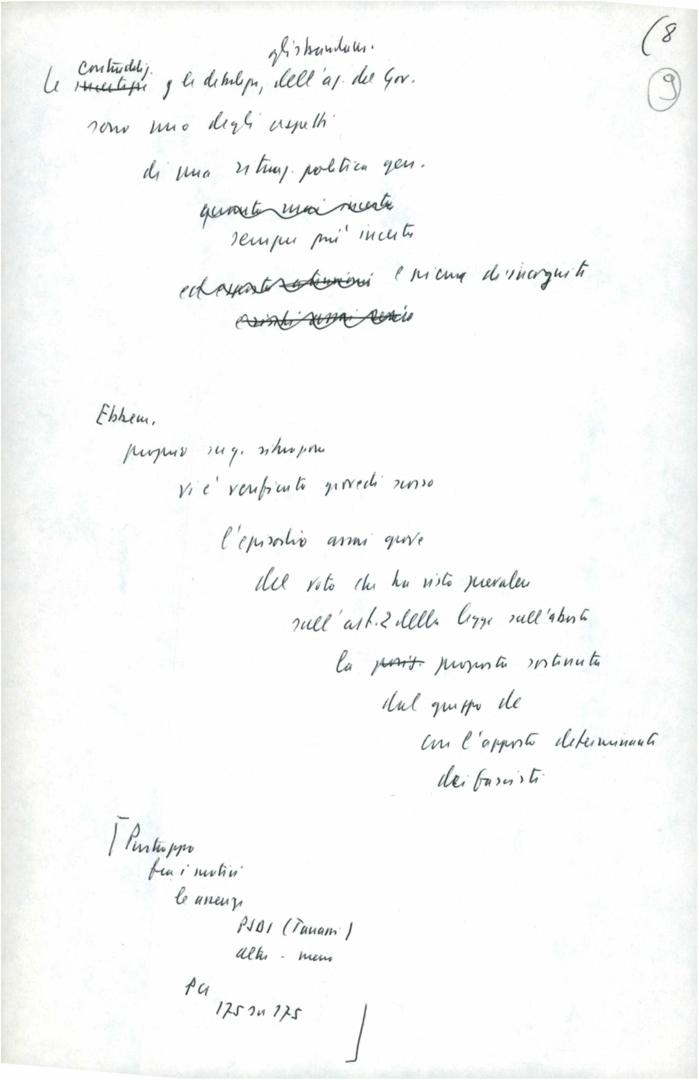 (8
9
gli sbandam.
contraddiz.
Le incertezze e le debolezze, dell'az. del Gov.
sono uno degli aspetti
di una situaz. politica gen.
quanto mai incerta
sempre più incerta
ed esposta e piena di incognite
Ebbene,
proprio in q. situazione
vi è verificato giovedì scorso
l'episodio assai grave
del voto che ha visto prevalere
sull'art. 2 della legge sull'aborto
la proposta sostenuta
dal gruppo dc
con l'apporto determinante
dei fascisti
[Purtroppo
fra i motivi
le assenze
PSDI (Tanassi)
altri - meno
PCI
175 su 175
]